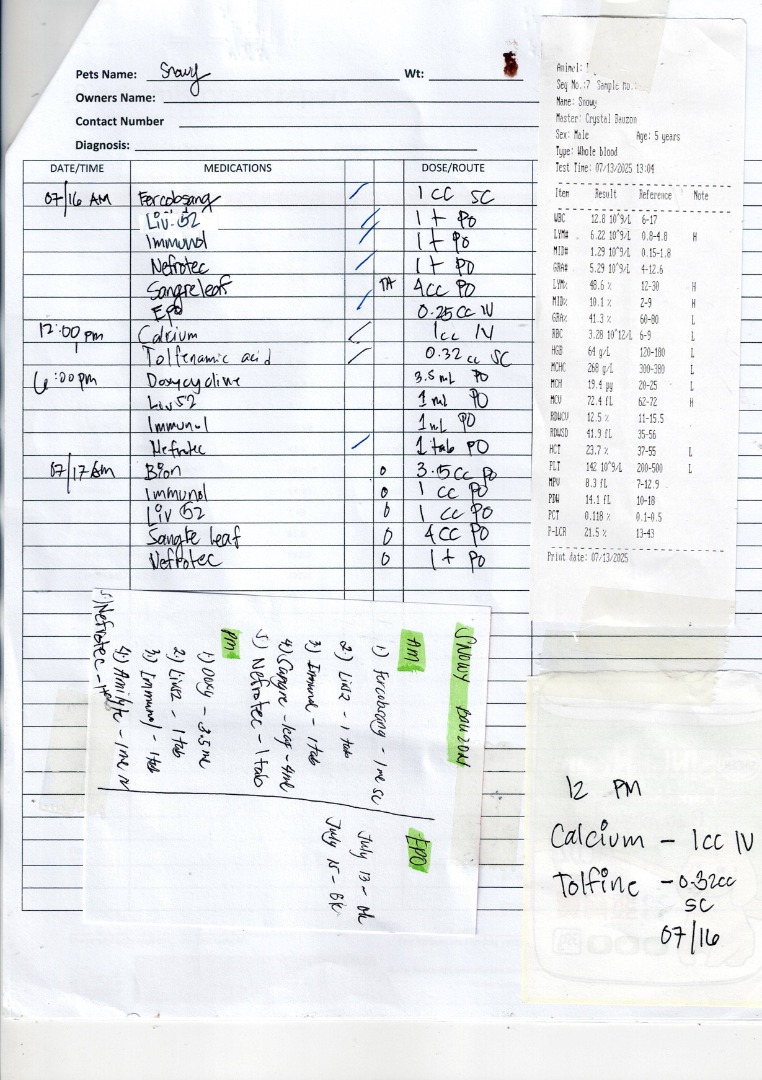 Pets Name: Snowy Wt:
Owners Name:
Contact Number
Diagnosis:
DATE/TIME MEDICATIONS DOSE/ROUTE
07/16 AM Forcobsang 1 CC SC
Liv. 52 1 t PO
Immunol 1 t PO
Nefrotec 1 t PO
Sangreleaf 4cc PO
EPO 0.25 cc IV
12:00 pm Calcium 1cc IV
Tolfenamic acid 0.32 cc SC
6:00pm Doxycycline 3.5 mL PO
Liv52 1 mL PO
Immunol 1mL PO
Nefrotec 1 tab PO
07/17 Am Bion 0 3.5cc PO
Immunol 0 1 cc PO
Liv 52 0 1 cc PO
Sangre leaf 0 4cc PO
Nefrotec 0 1 t PO
Animel:
Seq No.:7 Sample No.:
Name: Snowy
Master: Crystal Bauzon
Sex: Male Age: 5 years
Type: Whole blood
Test Time: 07/13/2025 13:04
Item Result Reference Note
WBC 12.8 10^9/L 6-17
LYM# 6.22 10^9/L 0.8-4.8 H
MID# 1.29 10^9/L 0.15-1.8
GRA# 5.29 10^9/L 4-12.6
LYM% 48.6 % 12-30 H
MID% 10.1 % 2-9 H
GRA% 41.3 % 60-80 L
RBC 3.28 10^12/L 6-9 L
HGB 64 g/L 120-180 L
MCHC 268 g/L 300-380 L
MCH 19.4 pg 20-25 L
MCV 72.4 fL 62-72 H
RDWCV 12.5 % 11-15.5
RDWSD 41.9 fL 35-56
HCT 23.7 % 37-55 L
PLT 142 10^9/L 200-500 L
MPV 8.3 fL 7-12.9
PDW 14.1 fL 10-18
PCT 0.118 % 0.1-0.5
P-LCR 21.5 % 13-43
Print date: 07/13/2025
SNOWY BAUZON
AM
1) Forcobsang - 1 ml SC
2.) Liv52 - 1 tab
3) Immunol - 1 tab
4) Sangre - leaf - 4ml
5) Nefrotec - 1 tab
PM
1) Doxy - 3.5 ml
2.) Liv52 - 1 tab
3) Immunol - 1 tab
4) Amilyte - 1 ml IV
5.) Nefrotec -
EPO
July 13 - ok
July 15 - ok
12 PM
Calcium - 1cc IV
Tolfine - 0.32cc
SC
07/16